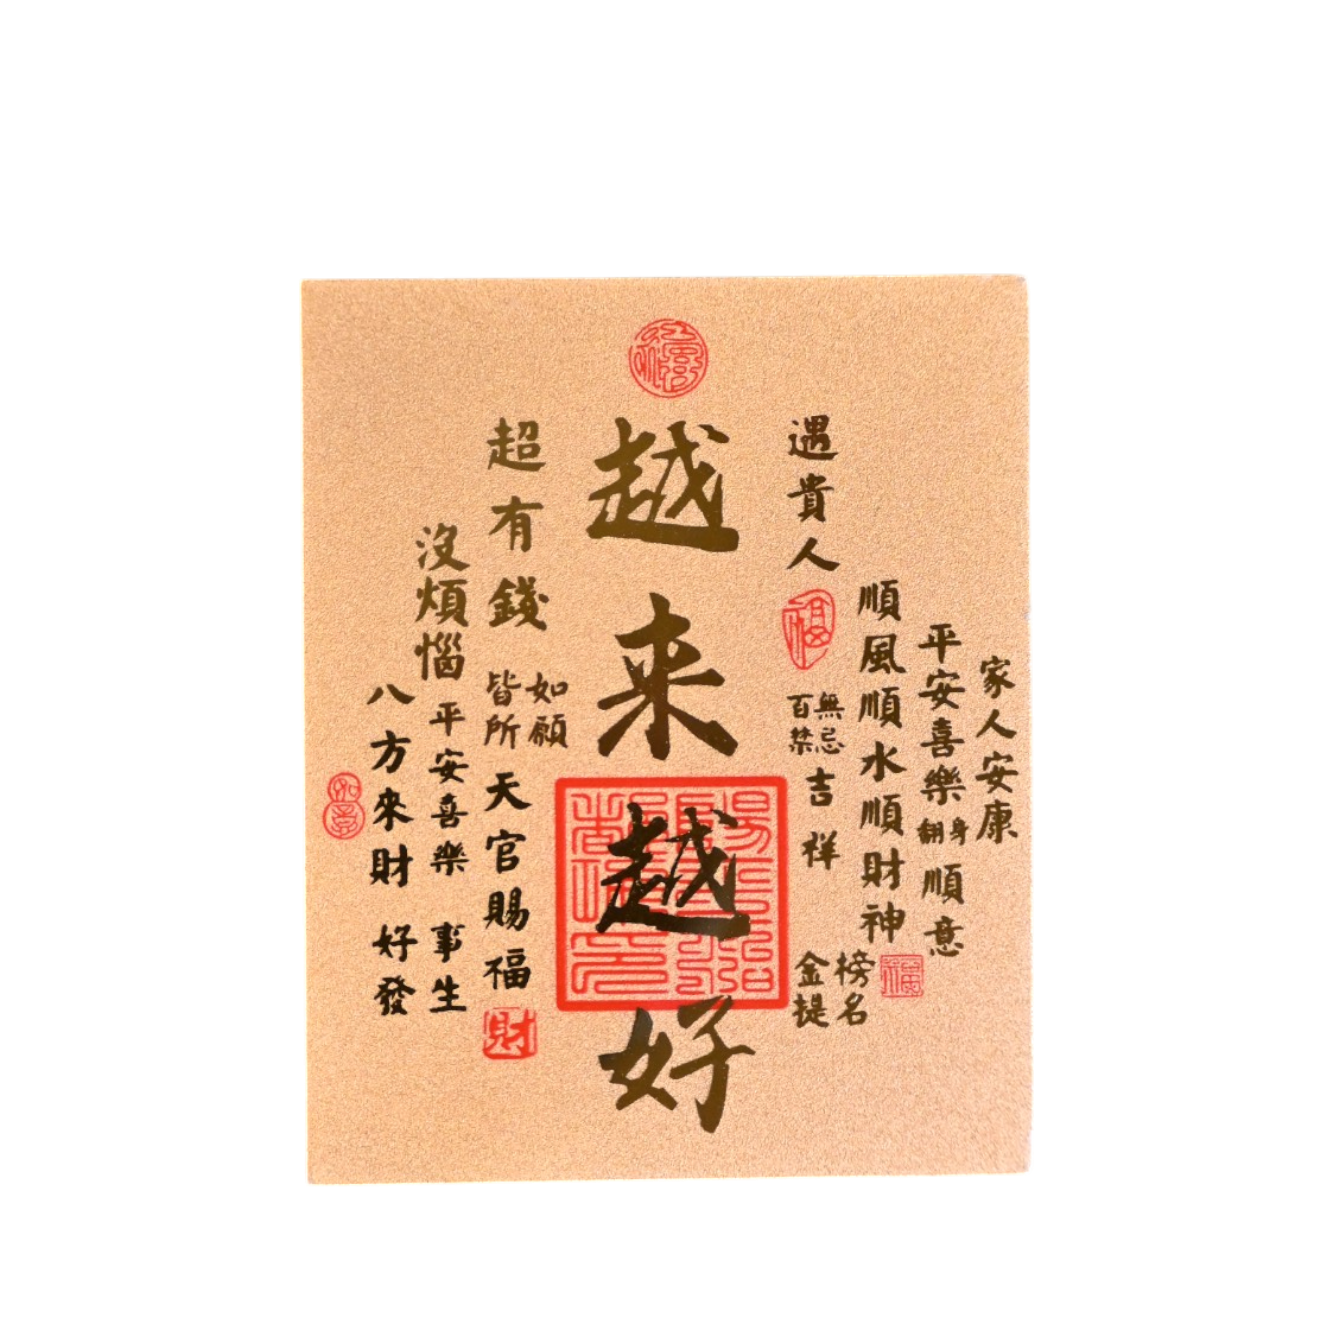 家人安康
平安喜樂
翻身
順意
順風順水順財神
遇貴人
福
百無
禁忌
吉祥
金榜
提名
福
越来越好
超有錢
皆如
所願
天官賜福
財
沒煩惱
平安喜樂
事生
八方來財
好發
如意